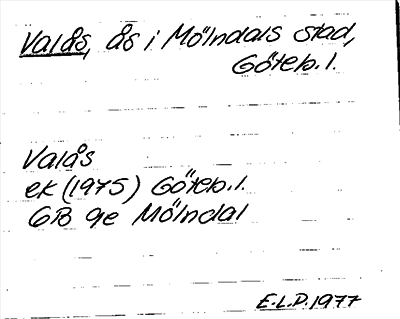 Valås, ås i Mölndals stad,
Göteb. l.
Valås
ek (1975) Göteb. l.
GB 9e Mölndal
E.L.P. 1977